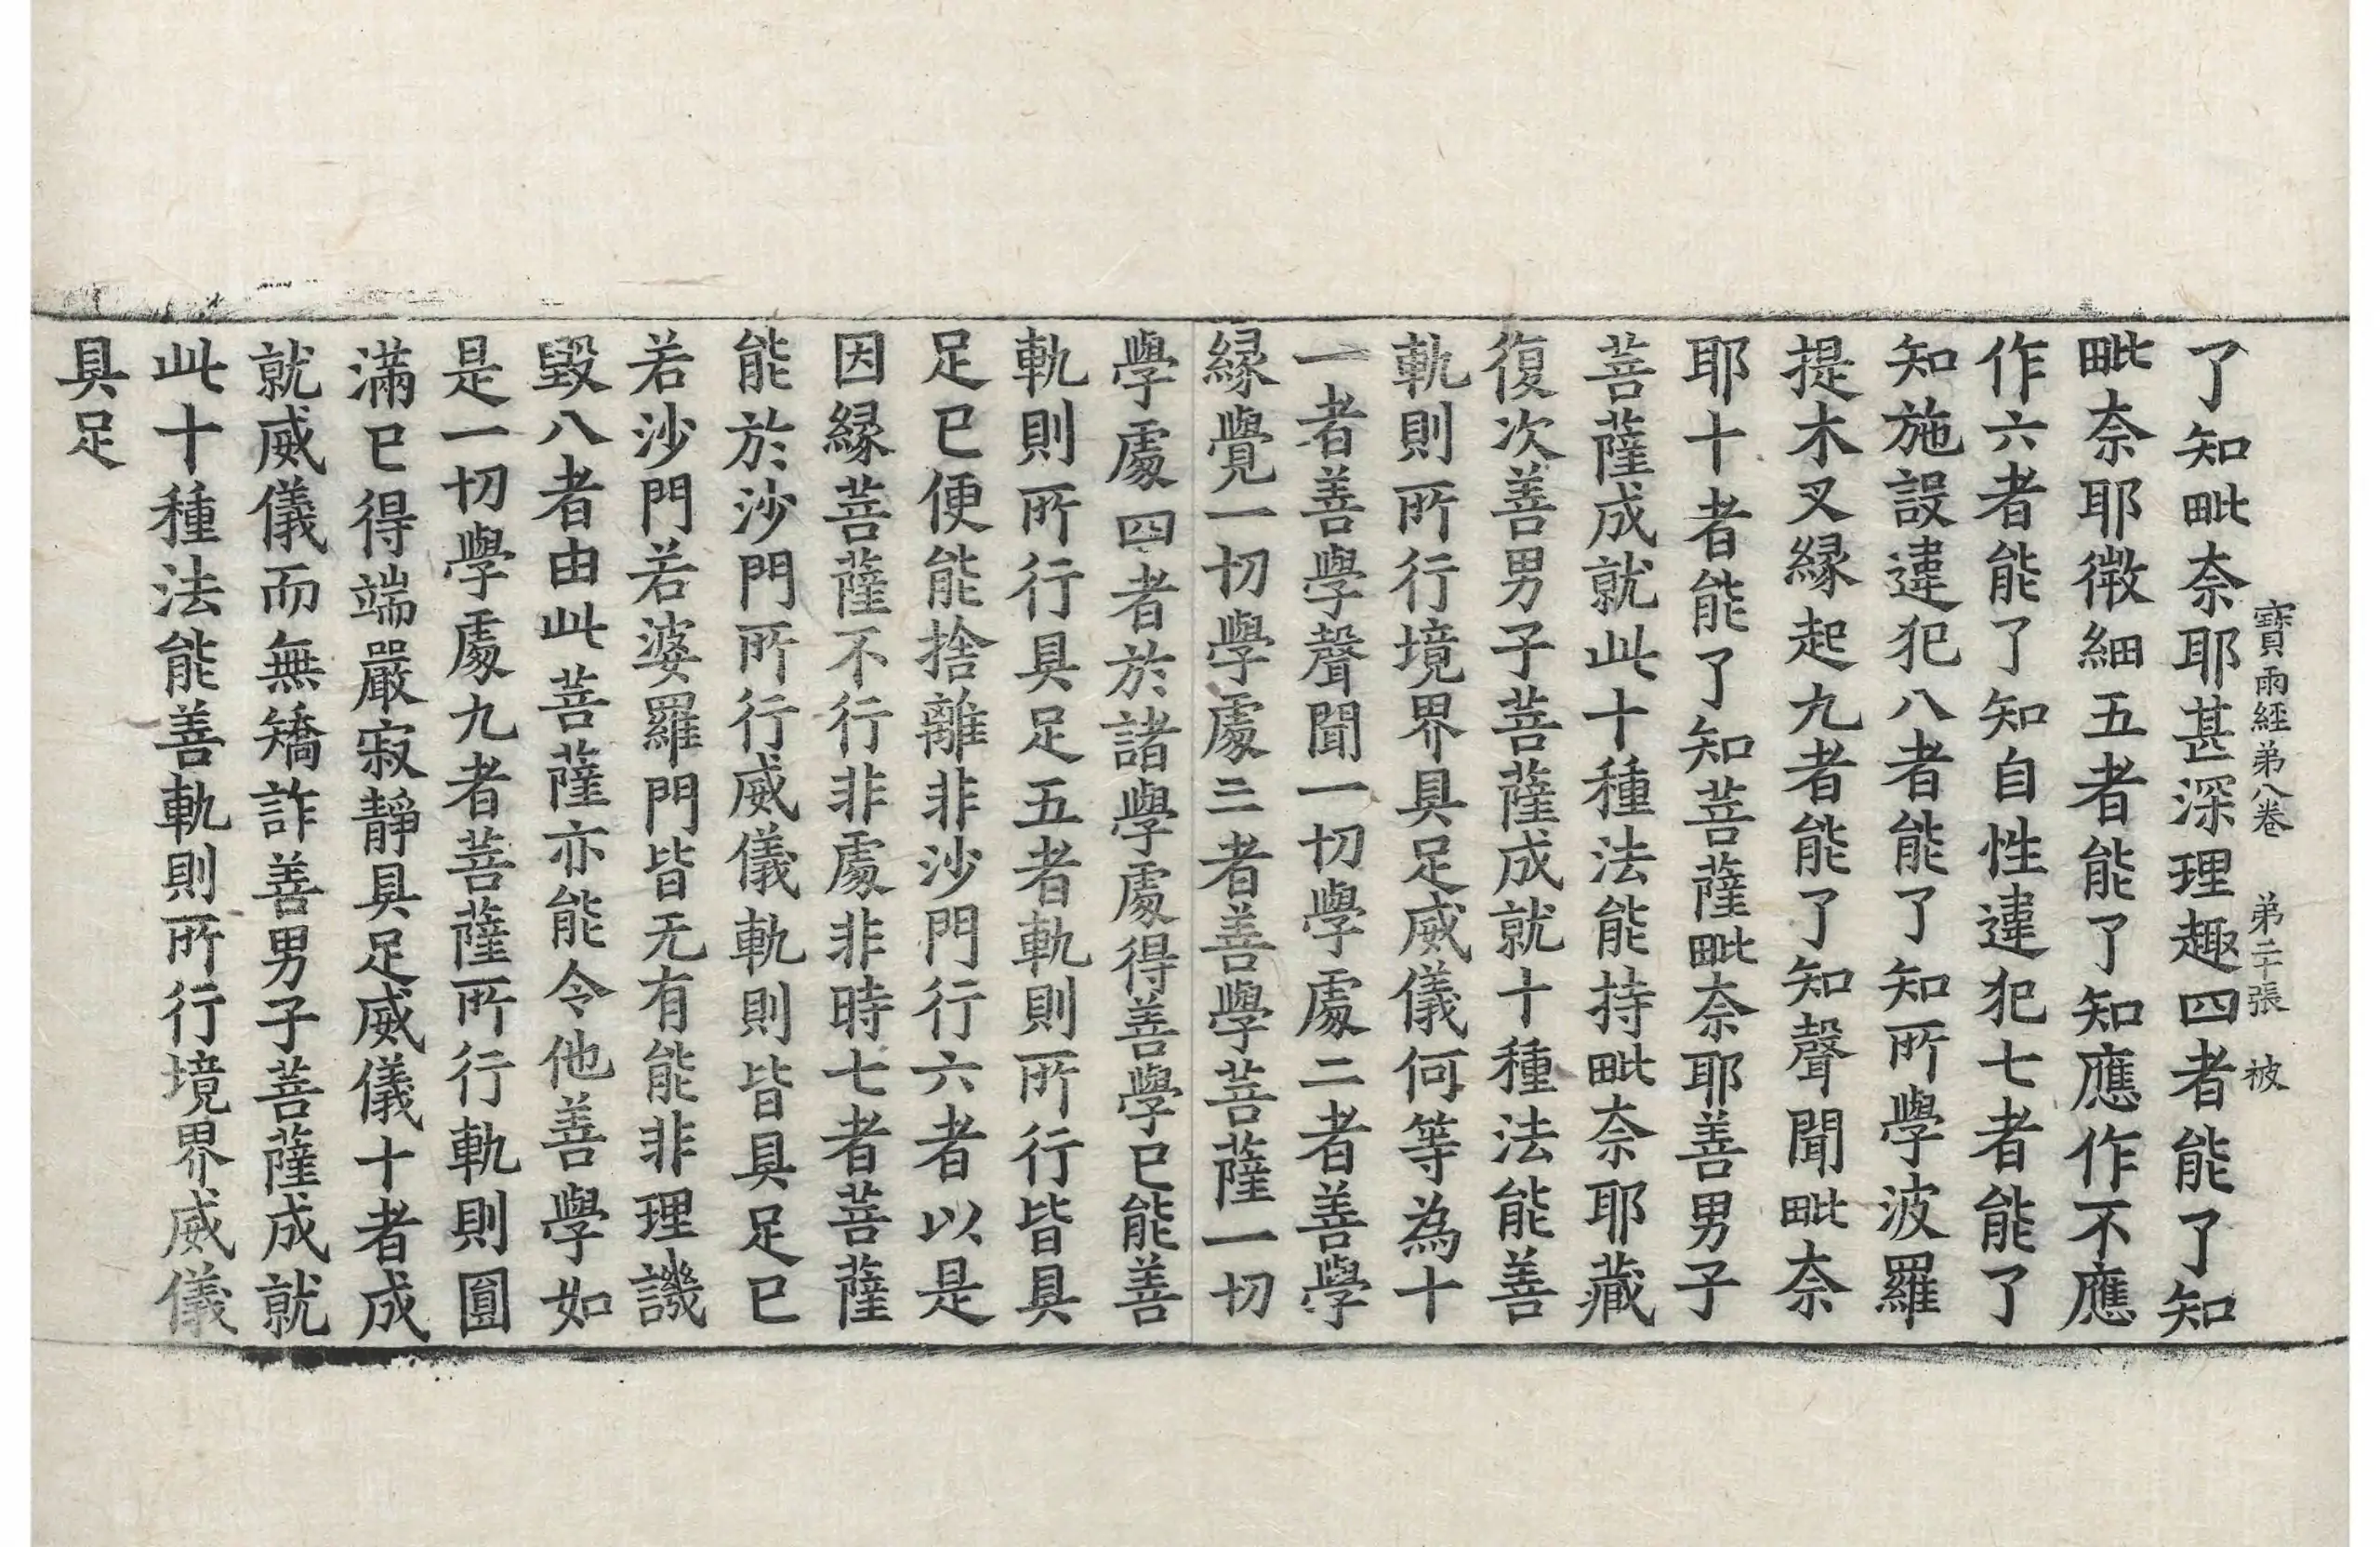 寶雨經弟八卷 弟二十張 被
了知毗奈耶甚深理趣四者能了知
毗奈耶微細五者能了知應作不應
作六者能了知自性違犯七者能了
知施設違犯八者能了知所學波羅
提木叉縁起九者能了知聲聞毗奈
耶十者能了知菩薩毗奈耶善男子
菩薩成就此十種法能持毗奈耶藏
復次善男子菩薩成就十種法能善
軌則所行境界具足威儀何等為十
一者善學聲聞一切學處二者善學
縁覺一切學處三者善學菩薩一切
學處四者於諸學處得善學已能善
軌則所行具足五者軌則所行皆具
足已便能捨離非沙門行六者以是
因縁菩薩不行非處非時七者菩薩
能於沙門所行威儀軌則皆具足已
若沙門若婆羅門皆无有能非理譏
毀八者由此菩薩亦能令他善學如
是一切學處九者菩薩所行軌則圓
滿已得端嚴寂靜具足威儀十者成
就威儀而無矯詐善男子菩薩成就
此十種法能善軌則所行境界威儀
具足